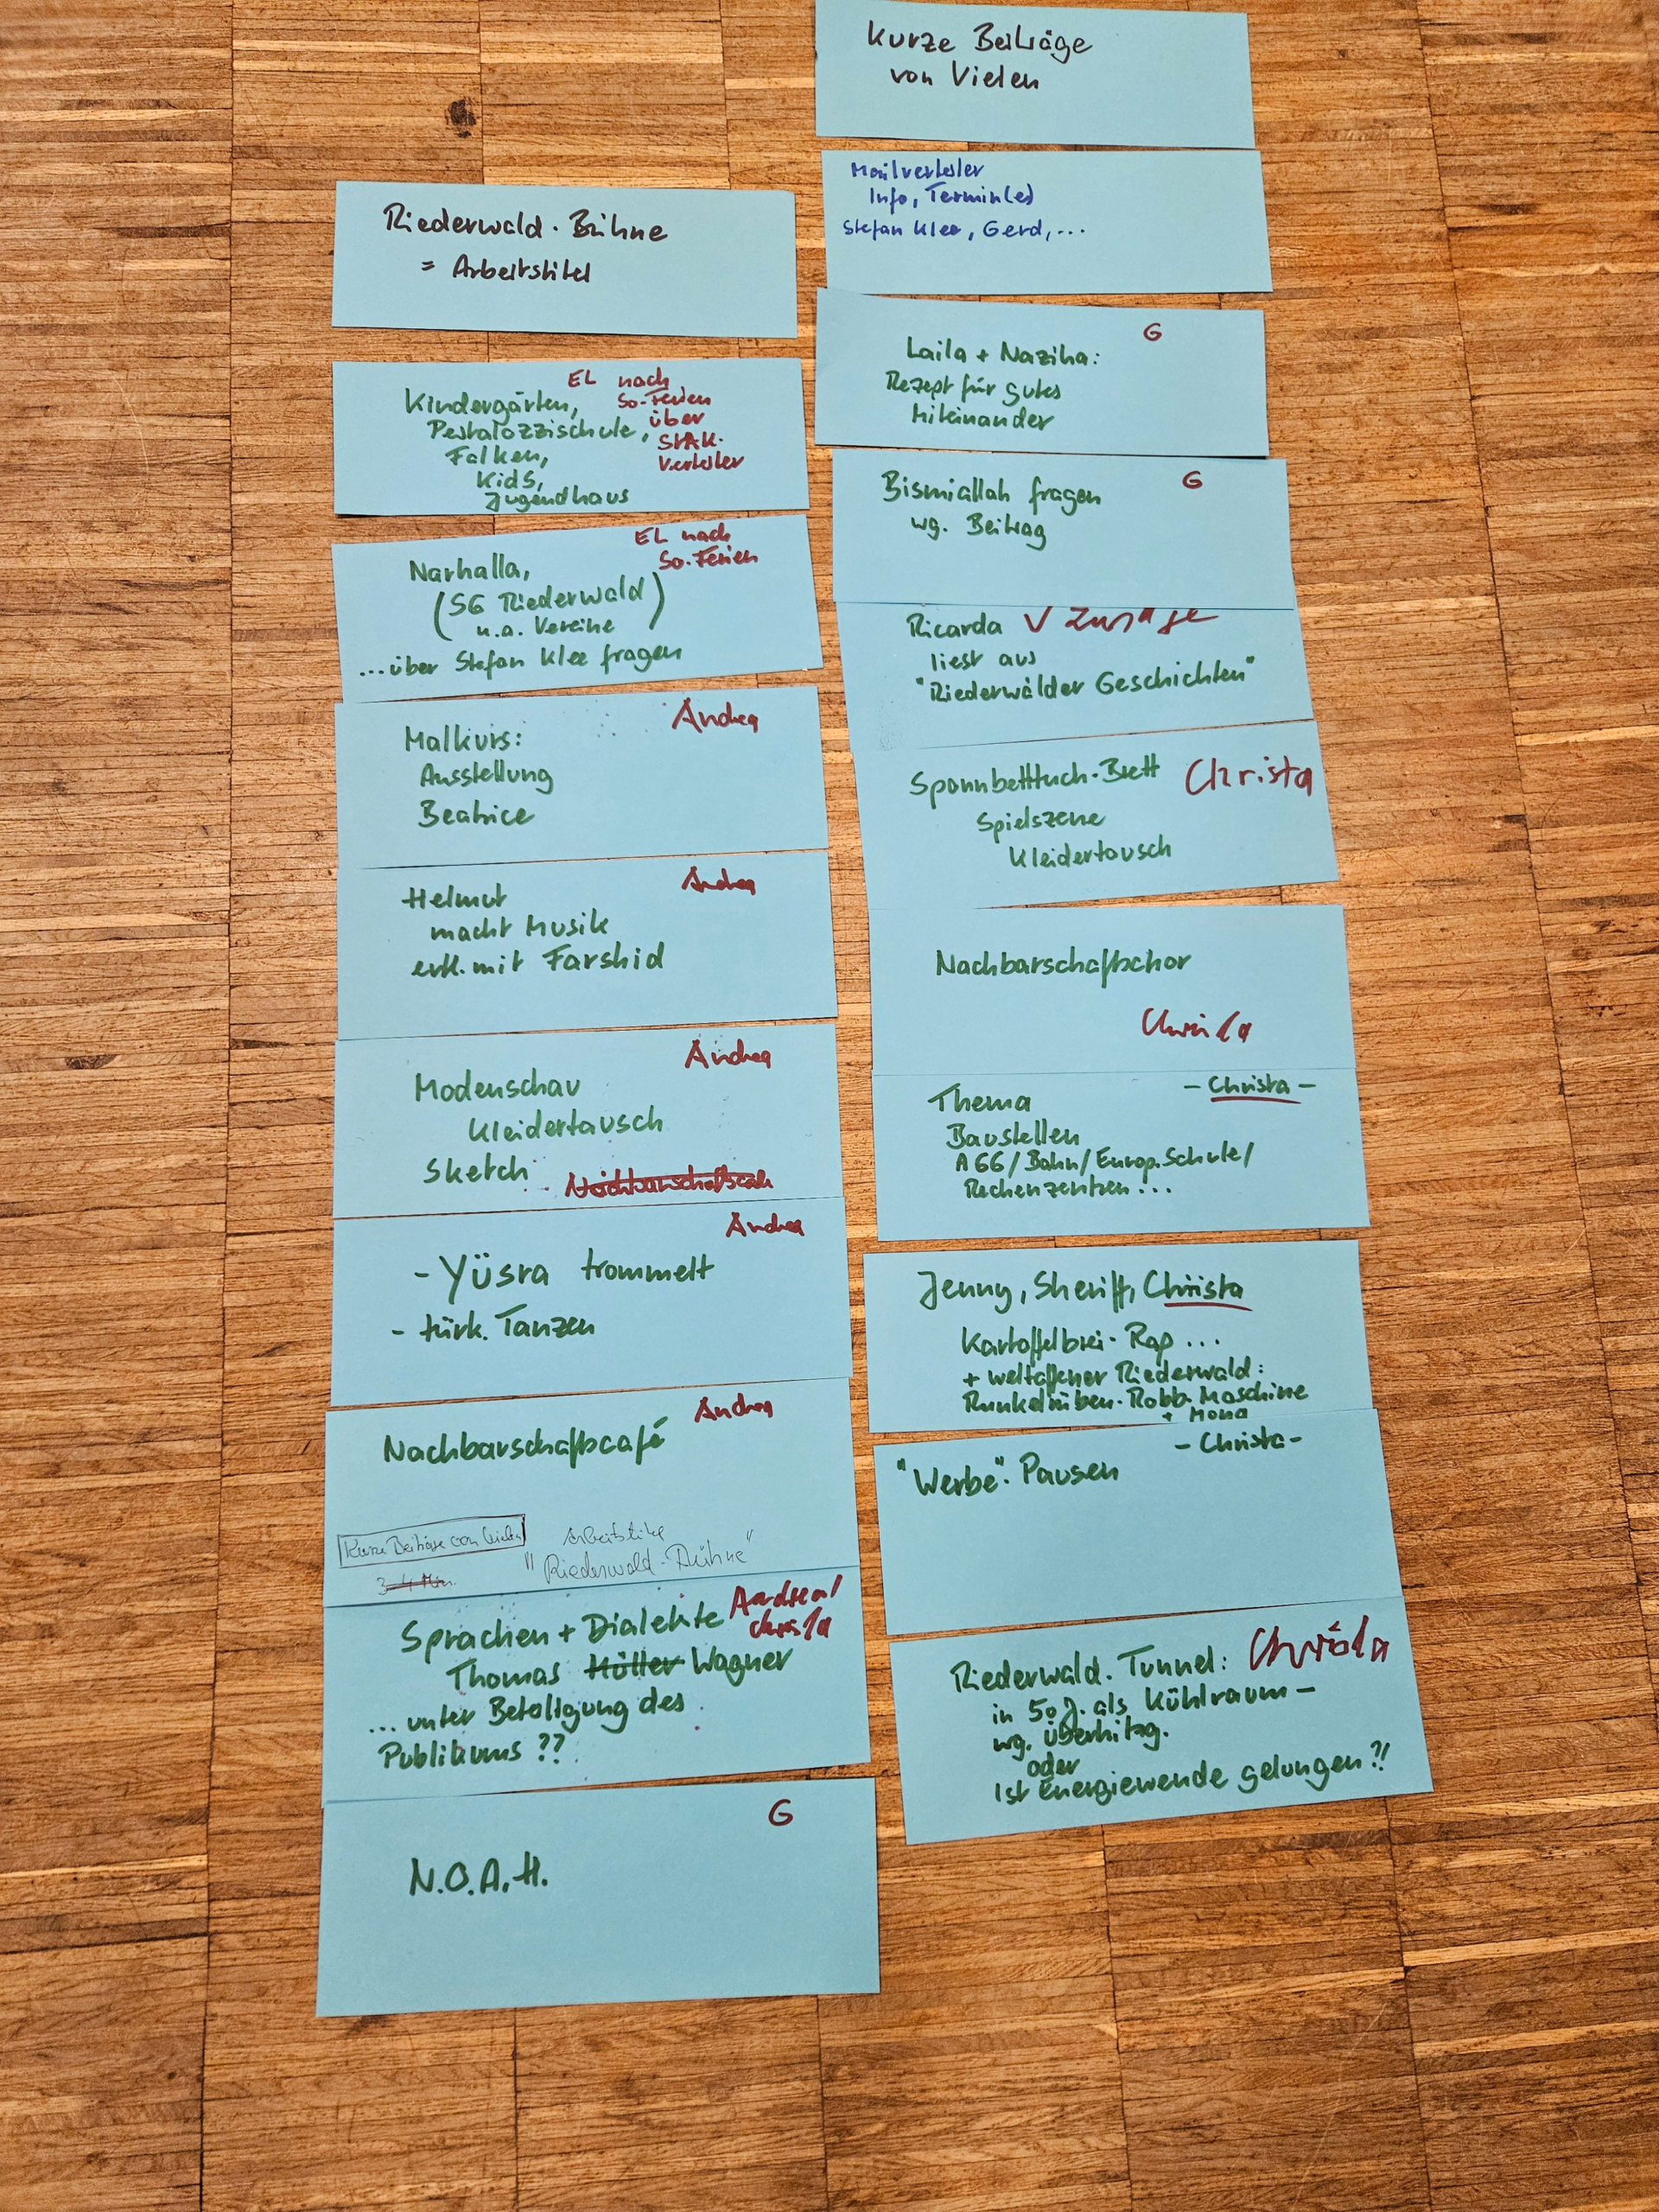 Riederwald-Bühne
= Arbeitstitel
EL nach
So-Ferien
über
StAK-
Verteiler
Kindergärten,
Pestalozzischule,
Falken,
Kids,
Jugendhaus
EL nach
So-Ferien
Narhalla,
(SG Riederwald)
u.a. Vereine
...über Stefan Klee fragen
Andrea
Malkurs:
Ausstellung
Beatrice
Andrea
Helmut
macht Musik
evtl. mit Farshid
Andrea
Modenschau
Kleidertausch
Sketch
Andrea
- Yüsra trommelt
- türk. Tanzen
Andrea
Nachbarschaftscafé
Kurze Beiträge von Vielen
3-4 Min.
Arbeitstitel
"Riederwald-Bühne"
Sprachen + Dialekte Andrea/
Christa
Thomas Müller Wagner
... unter Beteiligung des
Publikums ??
G
N.O.A.H.
Kurze Beiträge
von Vielen
Mailverteiler
Info, Termin(e)
Stefan Klee, Gerd,...
G
Laila + Naziha:
Rezept für gutes
Miteinander
G
Bismiallah fragen
wg. Beitrag
Ricarda V Zusage
liest aus
"Riederwälder Geschichten"
Spannbetttuch-Brett Christa
Spielszene
Kleidertausch
Nachbarschaftschor
Christa
- Christa -
Thema
Baustellen
A66/Bahn/Europ.Schule/
Rechenzentren...
Jenny, Sheriff, Christa
Kartoffelbrei-Rap ...
+ weltoffener Riederwald:
Runkelrüben-Robb-Maschine
+ Mona
- Christa -
"Werbe"-Pausen
Riederwald-Tunnel: Christa
in 50 J. als Kühlraum -
wg. Überhitzg.
oder
Ist Energiewende gelungen?!